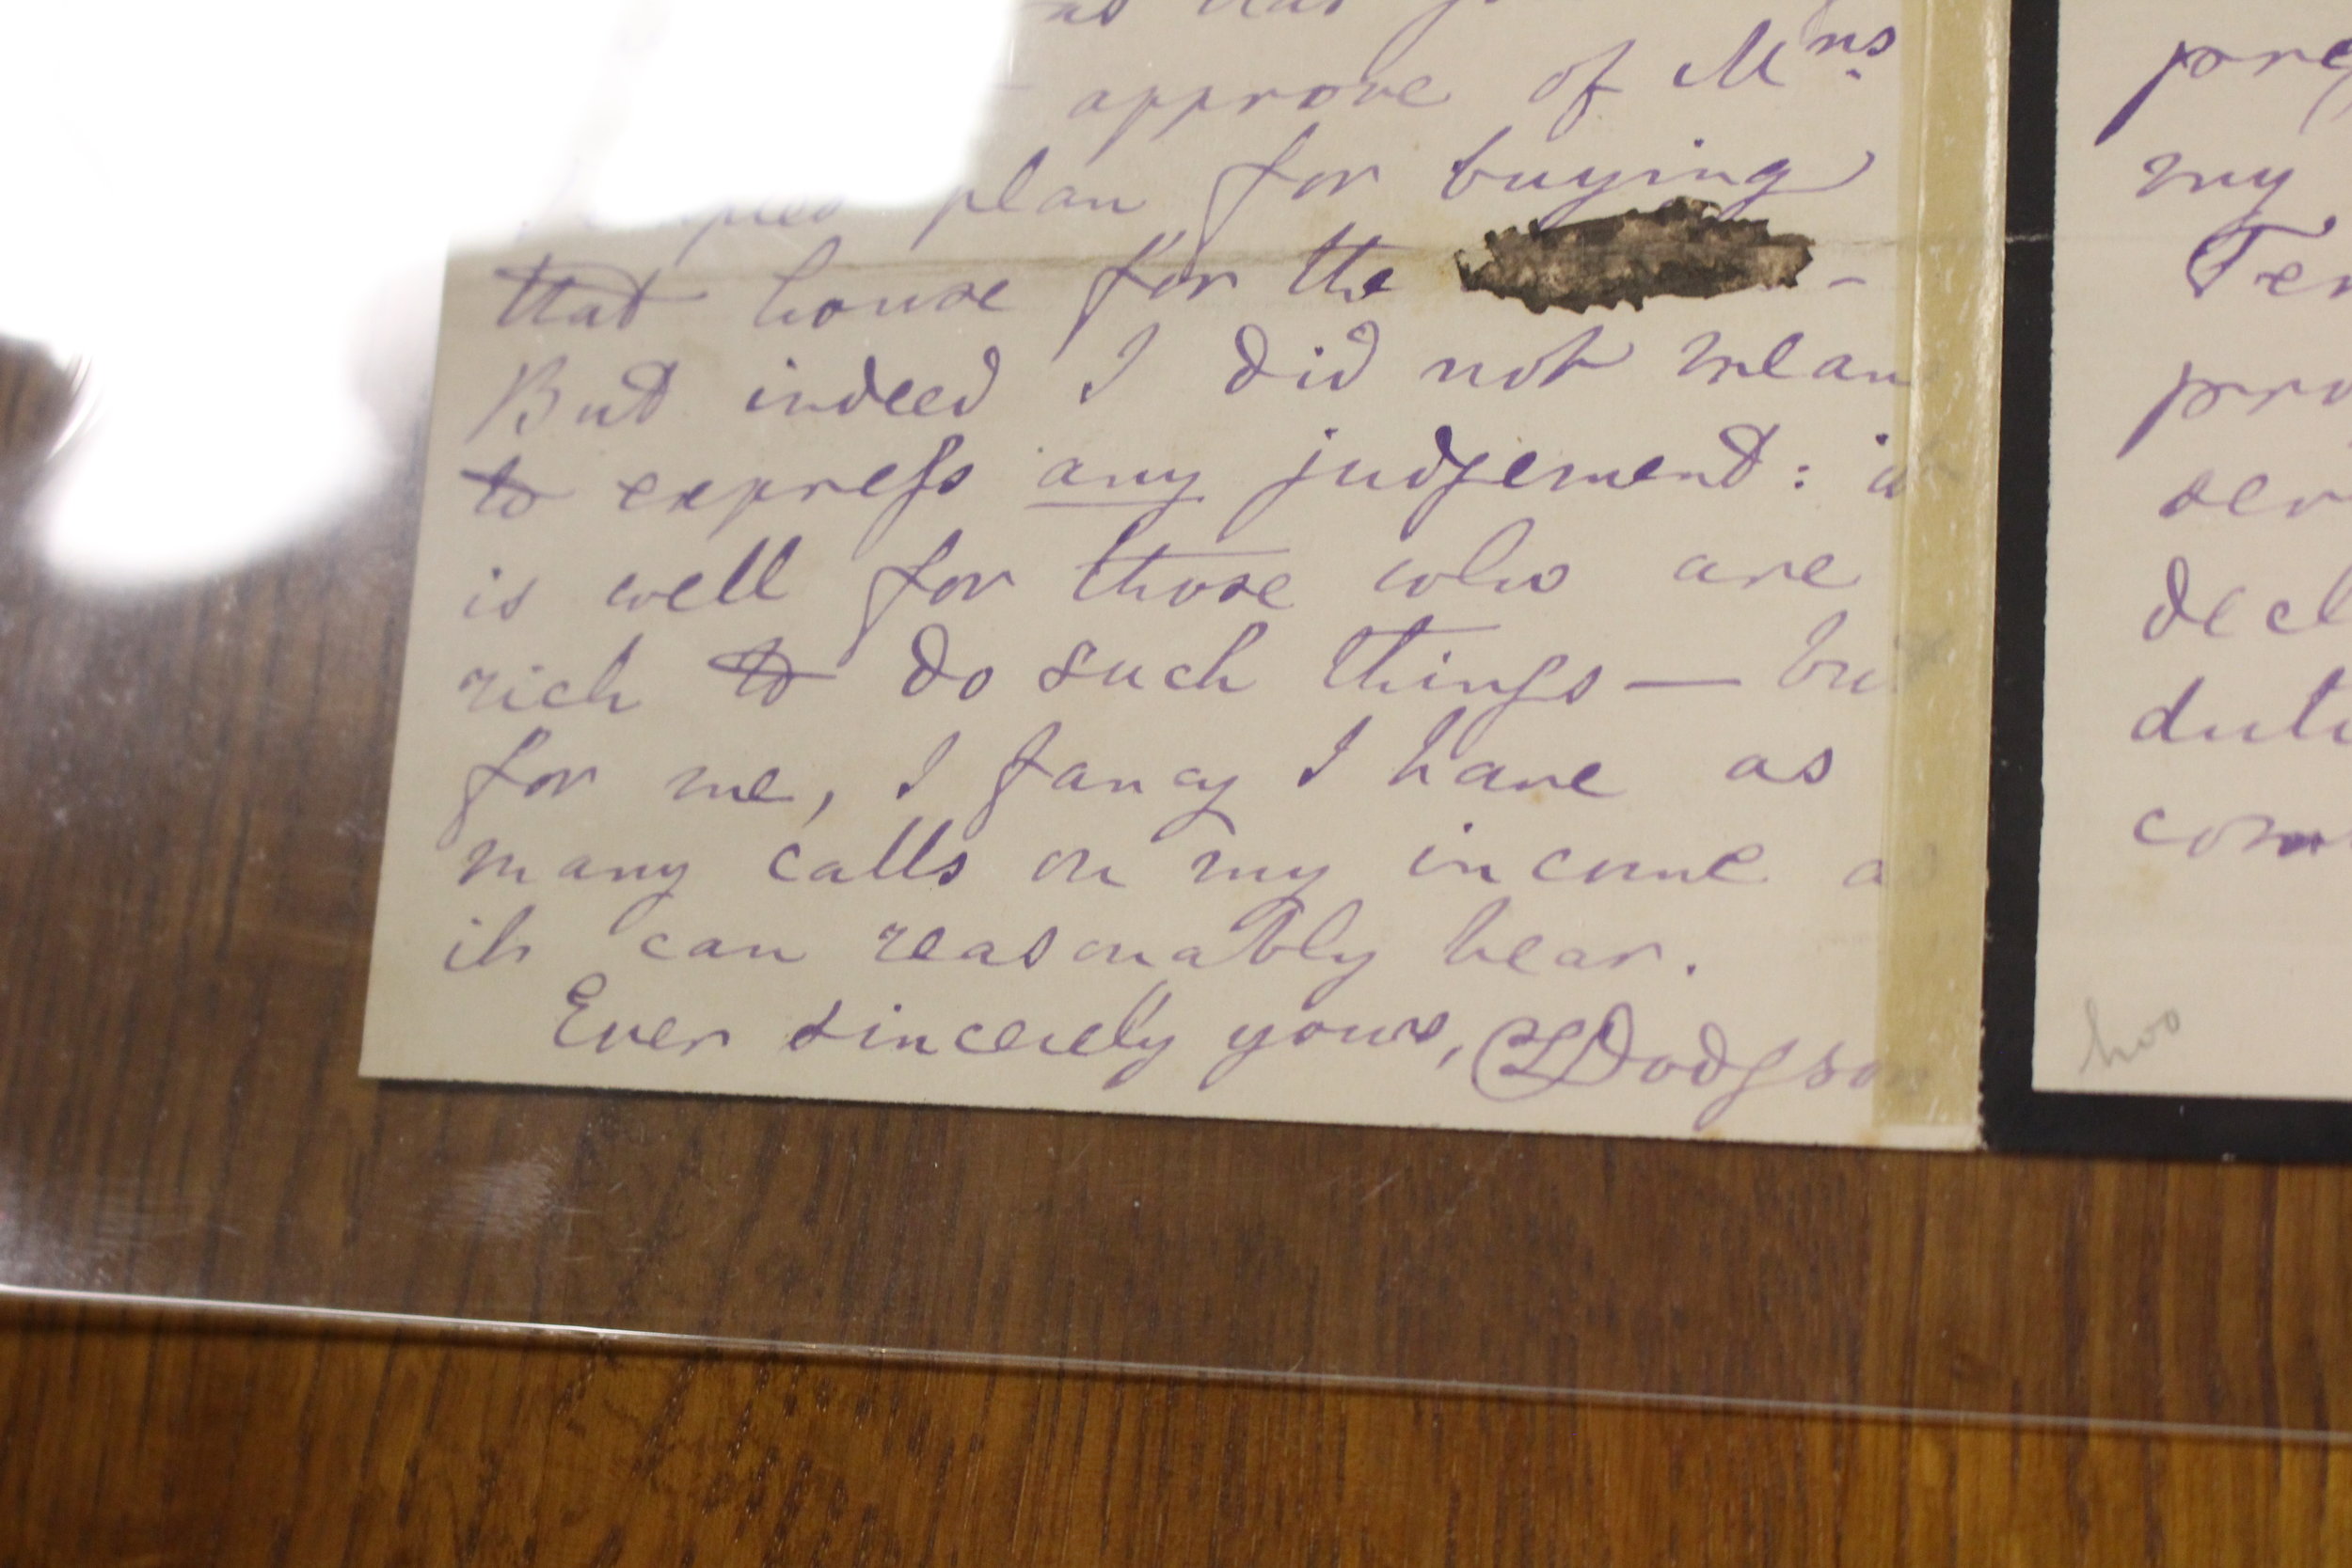 approve of Mrs.
plan for buying
that house for the -
But indeed I did not mean
to express any judgement: it
is well for those who are
rich to do such things — but
for me, I fancy I have as
many calls on my income as
it can reasonably bear.
Ever sincerely yours, CLDodgson
my
hoo